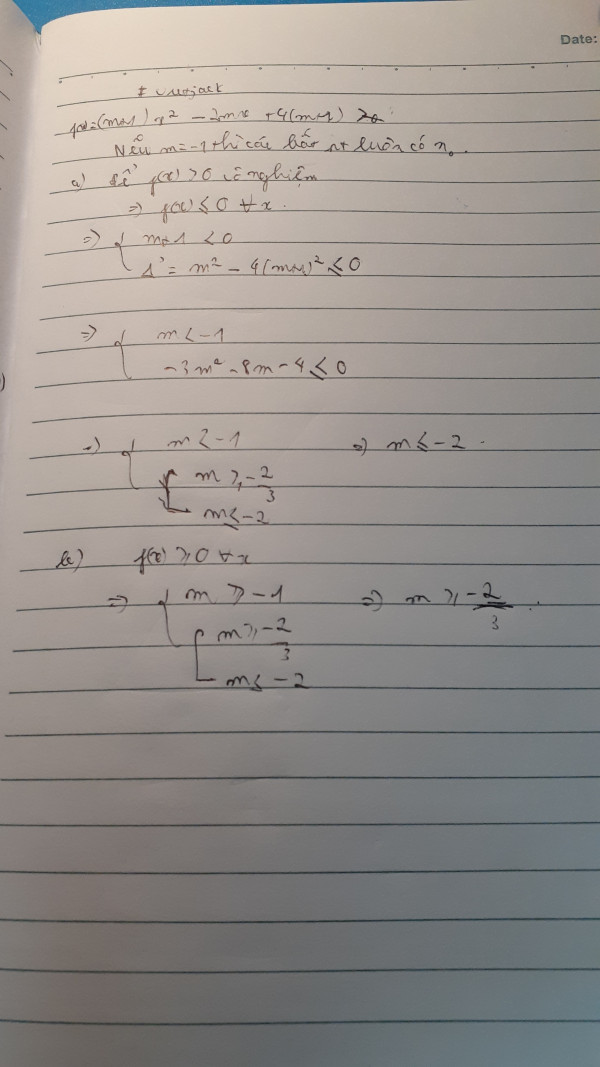 Date:
f(x)=(m+1)x² - 2mx + 4(m+1)
Nếu m=-1 thì các luôn có n₀.
a) Để f(x) > 0 vô nghiệm
=> f(x) ≤ 0 ∀x.
=> { m+1 < 0
Δ' = m² - 4(m+1)² ≤ 0
=> { m < -1
-3m² - 8m - 4 ≤ 0
=> { m < -1 => m ≤ -2.
[ m ≥ -2/3
m ≤ -2
b) f(x) ≥ 0 ∀x
=> { m > -1 => m ≥ -2/3.
[ m ≥ -2/3
m ≤ -2